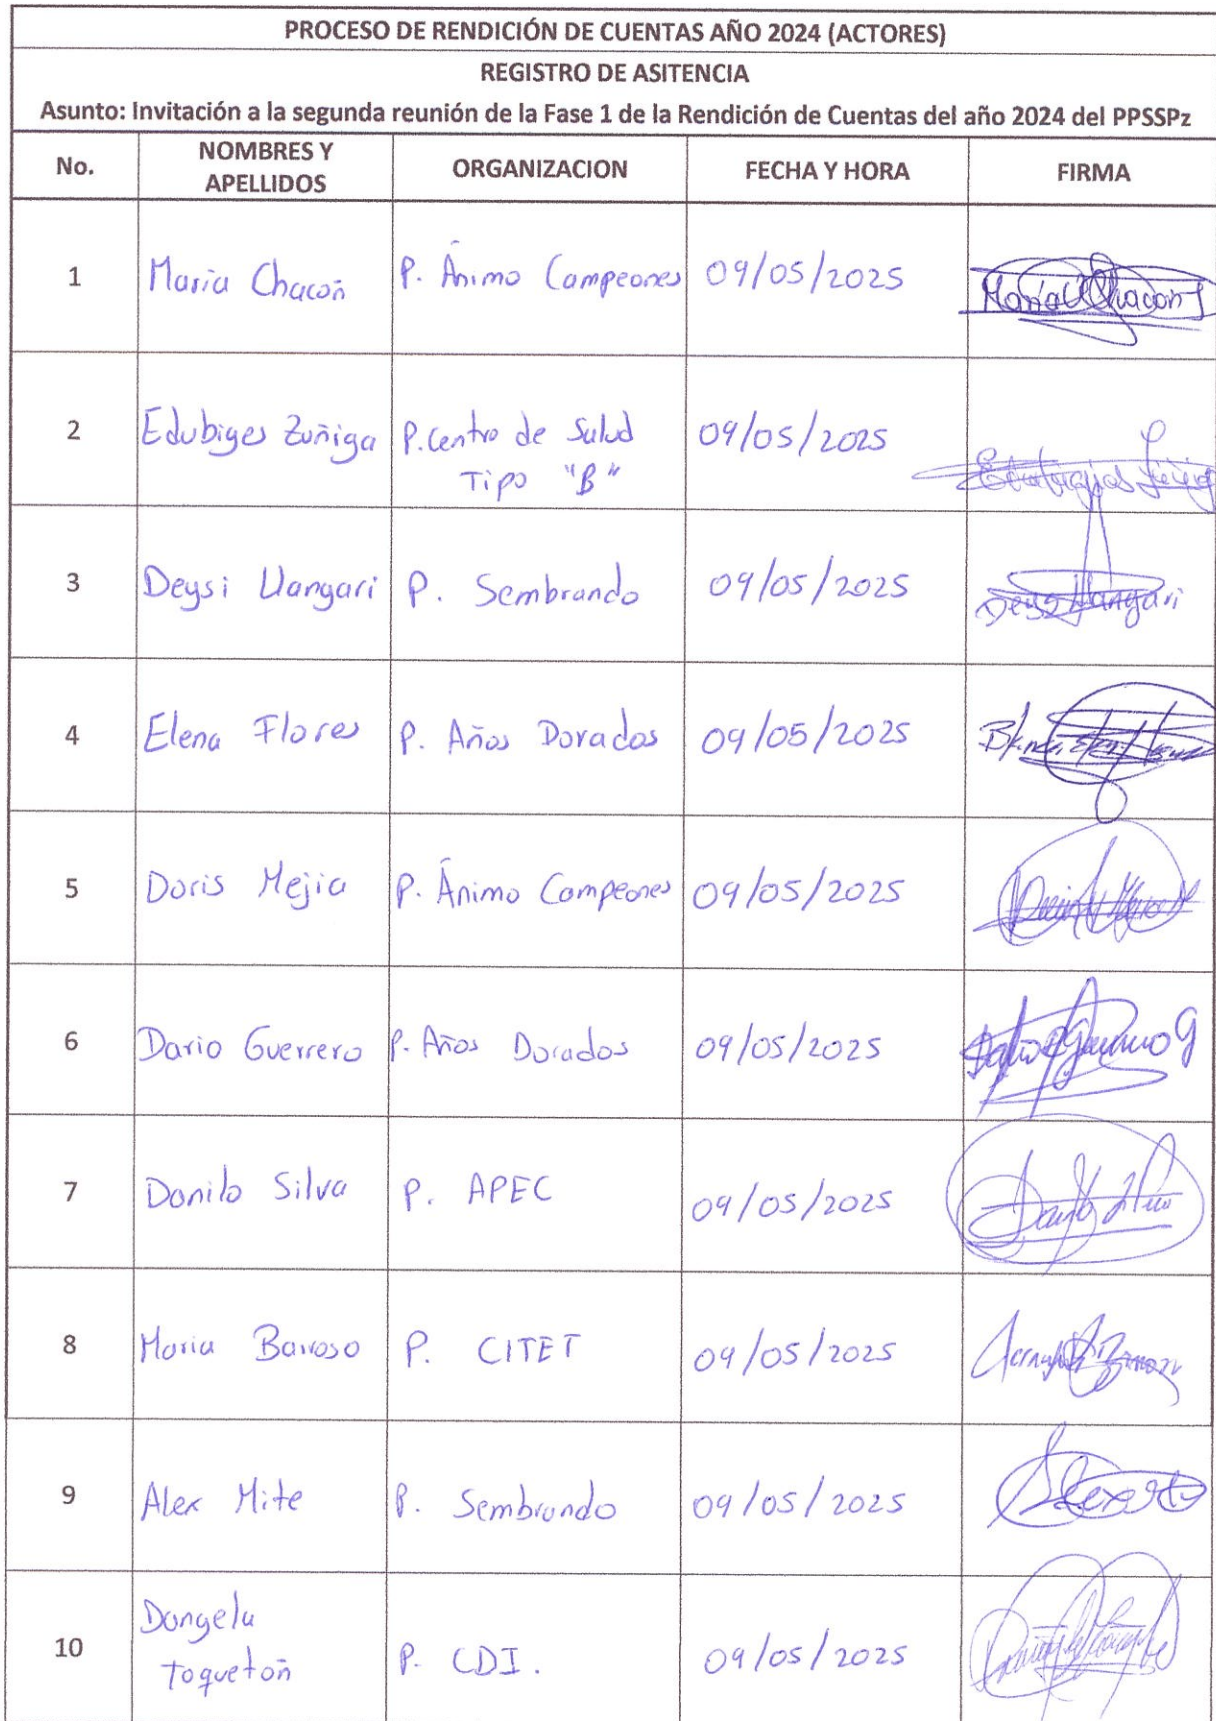 PROCESO DE RENDICIÓN DE CUENTAS AÑO 2024 (ACTORES)
REGISTRO DE ASITENCIA
Asunto: Invitación a la segunda reunión de la Fase 1 de la Rendición de Cuentas del año 2024 del PPSSPz
No. NOMBRES Y APELLIDOS ORGANIZACION FECHA Y HORA FIRMA
1 María Chacón P. Ánimo Campeones 09/05/2025 María Chacon
2 Edubiges Zuñiga P. Centro de Salud Tipo "B" 09/05/2025
3 Deysi Uangari P. Sembrando 09/05/2025 Deysi Uangari
4 Elena Flores P. Años Dorados 09/05/2025
5 Doris Mejia P. Ánimo Campeones 09/05/2025
6 Dario Guerrero P. Años Dorados 09/05/2025
7 Danilo Silva P. APEC 09/05/2025
8 Maria Barroso P. CITET 09/05/2025
9 Alex Mite P. Sembrando 09/05/2025
10 Dangela Toquetoñ P. CDI. 09/05/2025